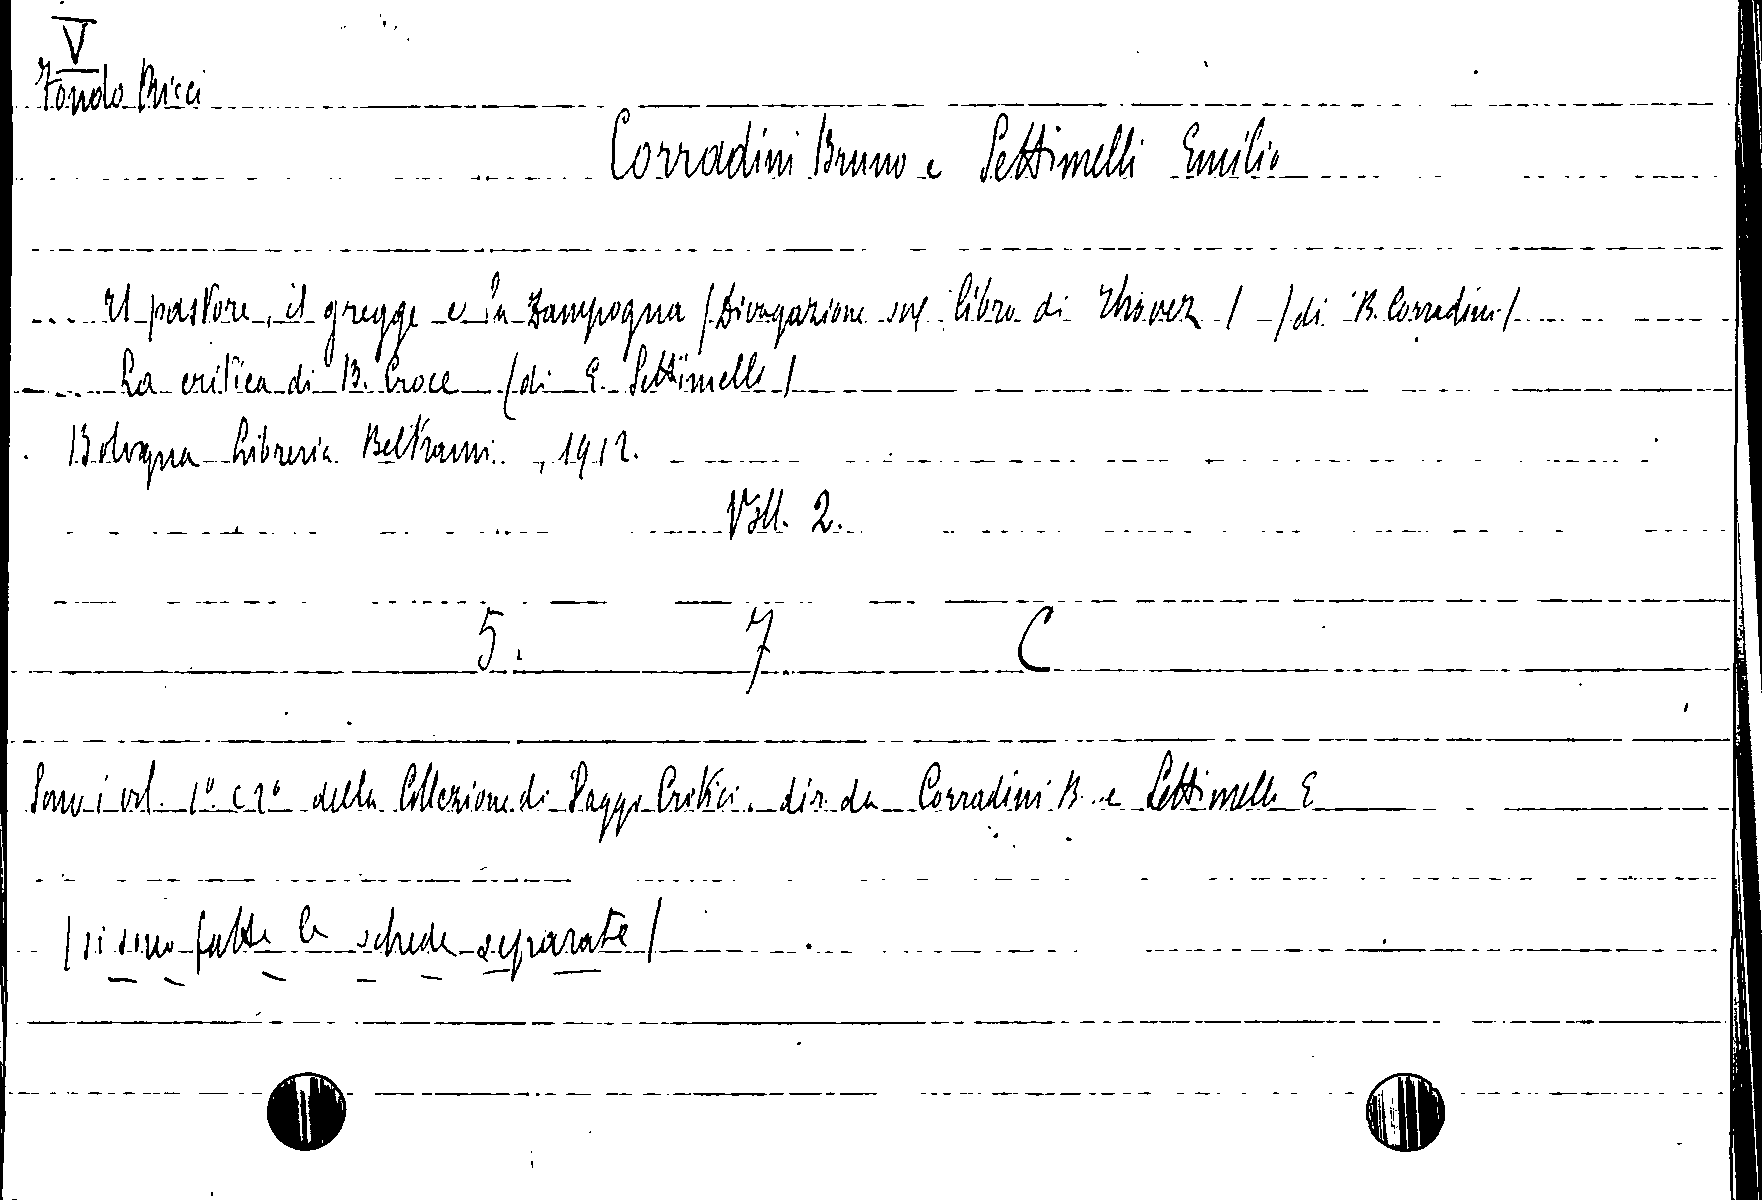 V
Fondo Ricci
Corradini Bruno e Settimelli Emilio
Il pastore, il gregge e la zampogna (Divagazione sul libro di Thovez) (di B. Corradini)
La critica di B. Croce (di E. Settimelli)
Bologna Libreria Beltrami, 1912.
Voll. 2.
5. 7 C
Sono i vol. 1° e 2° della Collezione di Saggi Critici. dir. da Corradini B. e Settimelli E
(si sono fatte le schede separate)